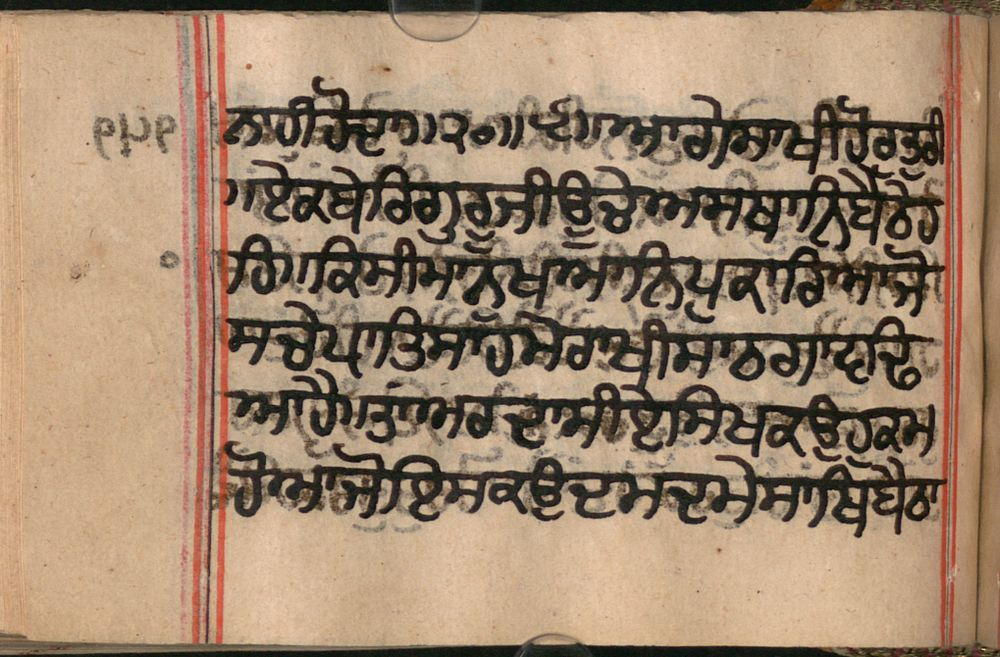 ਨਾਹੀ ਹੋਦਾ॥੨੦॥ ਆਗੇ ਸਾਖੀ ਹੋਰ ਤੁਰੀ
॥ਏਕ ਬੇਰਿ ਗੁਰੂ ਜੀ ਊਚੇ ਅਸਥਾਨਿ ਬੈਠੇ ਹ
ਹਿ॥ ਕਿਸੀ ਮਾਨੁਖ ਆਨਿ ਪੁਕਾਰਿਆ ਜੋ
ਸਚੇ ਪਾਤਿਸਾਹ ਮੇਰਾ ਖੀਸਾ ਠਗਾਂ
ਆ ਹੈ॥ ਤਾ ਅਰਦਾਸੀਏ ਸਿਖ ਕਉ ਹੁਕਮ
ਹੋਆ ਜੋ ਇਸ ਕਉ ਦਮਦਮੇ ਸਾਥਿ ਬੈਠਾ